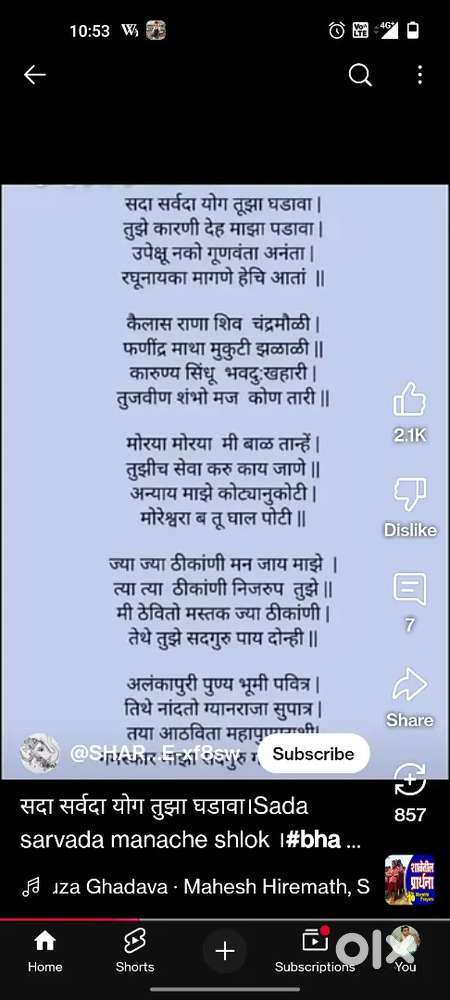 10:53
VoLTE 4G+
सदा सर्वदा योग तूझा घडावा |
तुझे कारणी देह माझा पडावा |
उपेक्षू नको गूणवंता अनंता |
रघूनायका मागणे हेचि आतां ||
कैलास राणा शिव चंद्रमौळी |
फणींद्र माथा मुकुटी झळाळी ||
कारुण्य सिंधू भवदु:खहारी |
तुजवीण शंभो मज कोण तारी ||
मोरया मोरया मी बाळ तान्हें |
तुझीच सेवा करु काय जाणे ||
अन्याय माझे कोट्यानुकोटी |
मोरेश्वरा ब तू घाल पोटी ||
ज्या ज्या ठीकांणी मन जाय माझे |
त्या त्या ठीकांणी निजरुप तुझे ||
मी ठेवितो मस्तक ज्या ठीकांणी |
तेथे तुझे सदगुरु पाय दोन्ही ||
अलंकापुरी पुण्य भूमी पवित्र |
तिथे नांदतो ग्यानराजा सुपात्र |
तया आठविता
माझा सदगुरु
2.1K
Dislike
7
Share
857
@SHAR_E-xf8sw Subscribe
सदा सर्वदा योग तुझा घडावा।Sada
sarvada manache shlok ।#bha ...
uza Ghadava · Mahesh Hiremath, S
शाळेतील
प्रार्थना
Home Shorts Subscriptions You
olx